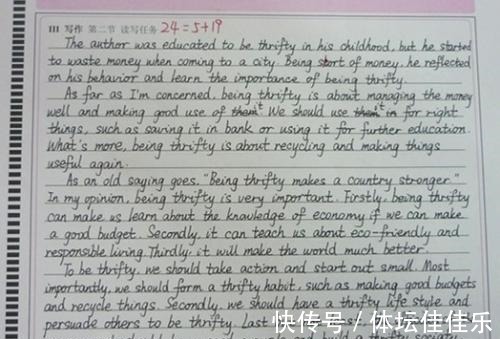 III 写作 第二节 读写任务 24=5+19
The author was educated to be thrifty in his childhood, but he started
to waste money when coming to a city. Being short of money, he reflected
on his behavior and learn the importance of being thrifty.
As far as I'm concerned, being thrifty is about managing the money
well and making good use of them it. We should use them it in for right
things, such as saving it in bank or using it for further education.
What's more, being thrifty is about recycling and making things
useful again.
As an old saying goes, "Being thrifty makes a country stronger."
In my opinion, being thrifty is very important. Firstly, being thrifty
can make us learn about the knowledge of economy if we can make
a good budget. Secondly, it can teach us about eco-friendly and
responsible living. Thirdly, it will make the world much better.
To be thrifty, we should take action and start out small. Most
importantly, we should form a thrifty habit, such as making good budgets
and recycle things. Secondly, we should have a thrifty life style and
persuade others to be thrifty. Last
快传号/体坛佳佳乐